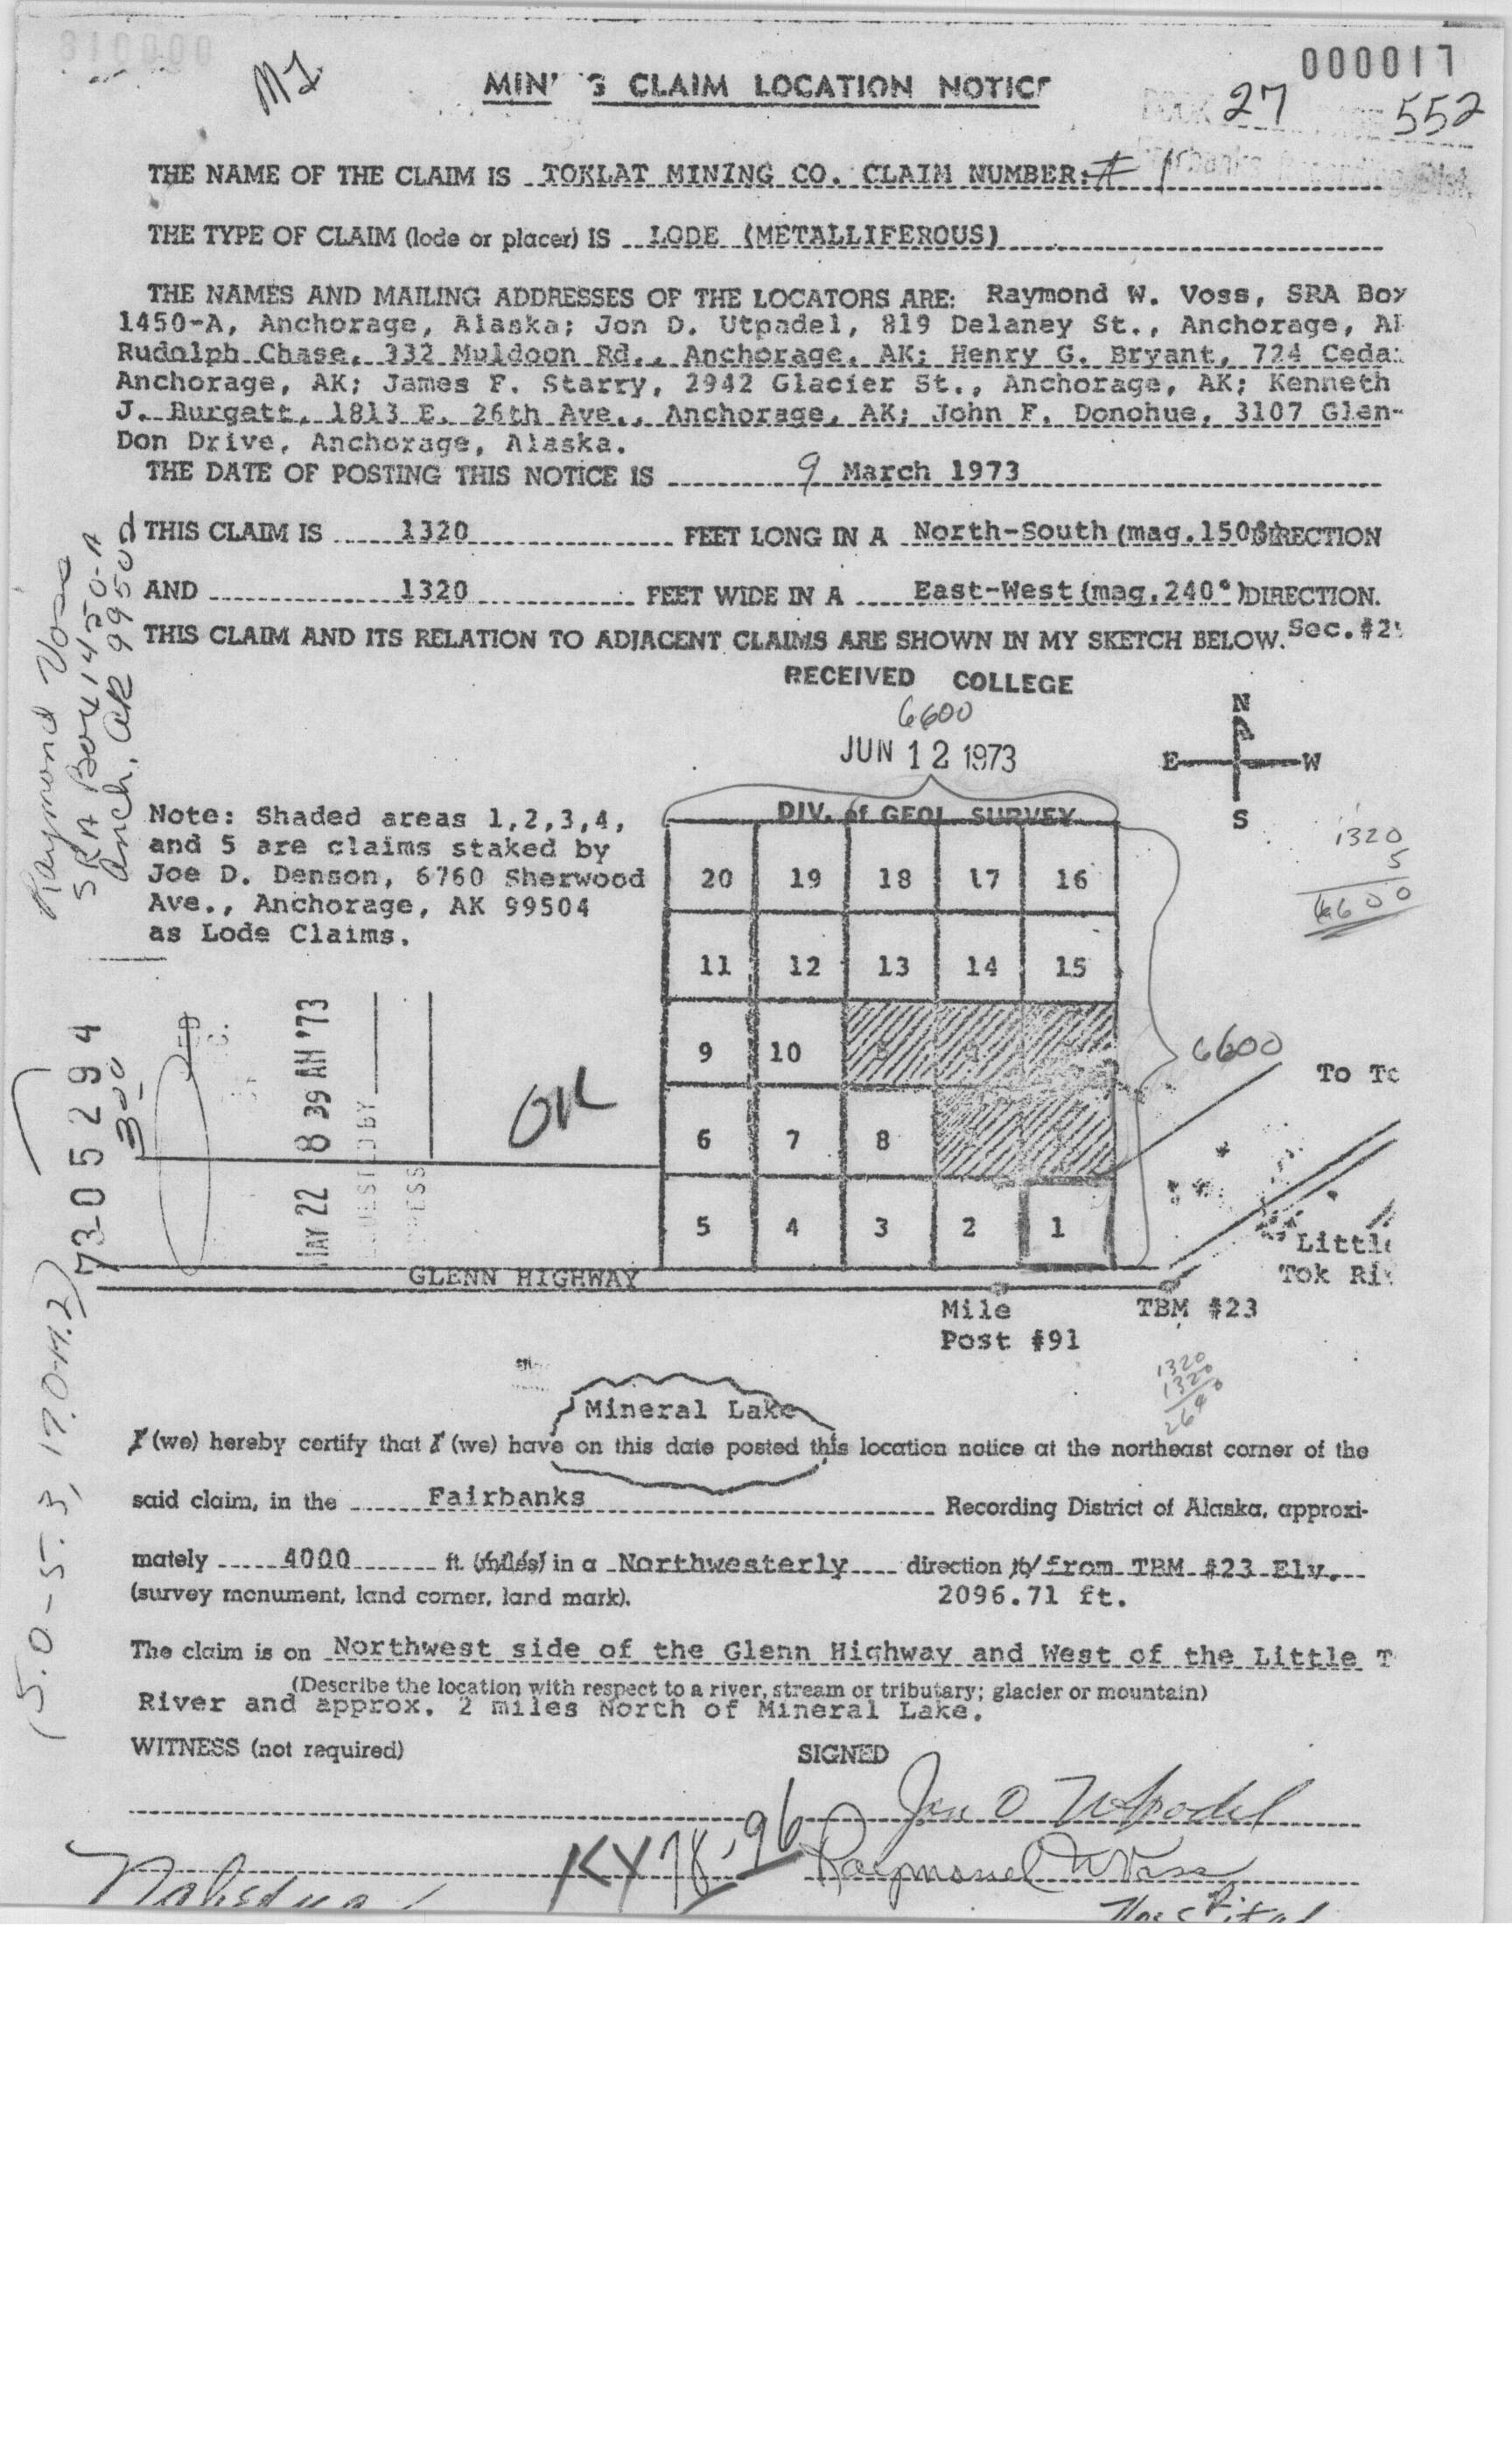 000017
M1
MIN' 'G CLAIM LOCATION NOTICE
BOOK 27 PAGE 552
THE NAME OF THE CLAIM IS TOKLAT MINING CO. CLAIM NUMBER: # 1
THE TYPE OF CLAIM (lode or placer) IS LODE (METALLIFEROUS)
THE NAMES AND MAILING ADDRESSES OF THE LOCATORS ARE: Raymond W. Voss, SRA Box
1450-A, Anchorage, Alaska; Jon D. Utpadel, 819 Delaney St., Anchorage, AK
Rudolph Chase, 332 Muldoon Rd., Anchorage, AK; Henry G. Bryant, 724 Ceda
Anchorage, AK; James F. Starry, 2942 Glacier St., Anchorage, AK; Kenneth
J. Burgatt, 1813 E. 26th Ave., Anchorage, AK; John F. Donohue, 3107 Glen-
Don Drive, Anchorage, Alaska.
THE DATE OF POSTING THIS NOTICE IS 9 March 1973
THIS CLAIM IS 1320 FEET LONG IN A North-South (mag.150°) DIRECTION
AND 1320 FEET WIDE IN A East-West (mag.240°) DIRECTION.
THIS CLAIM AND ITS RELATION TO ADJACENT CLAIMS ARE SHOWN IN MY SKETCH BELOW. Sec.#2
Raymond Voss
SRA Box 1450-A
Anch, AK 99502
RECEIVED COLLEGE
6600
JUN 12 1973
DIV. of GEOL SURVEY
N
E W
S
1320
5
6600
Note: Shaded areas 1,2,3,4,
and 5 are claims staked by
Joe D. Denson, 6760 Sherwood
Ave., Anchorage, AK 99504
as Lode Claims.
20 19 18 17 16
11 12 13 14 15
9 10
6 7 8
5 4 3 2 1
6600
To To
73-05294
3.00
MAY 22 8 39 AM '73
OK
Little
Tok Ri
GLENN HIGHWAY
Mile
Post #91
TBM #23
1320
1320
2640
Mineral Lake
I (we) hereby certify that I (we) have on this date posted this location notice at the northeast corner of the
said claim, in the Fairbanks Recording District of Alaska, approxi-
mately 4000 ft. (miles) in a Northwesterly direction to/from TBM #23 Elv.
(survey monument, land corner, land mark). 2096.71 ft.
The claim is on Northwest side of the Glenn Highway and West of the Little T
(Describe the location with respect to a river, stream or tributary; glacier or mountain)
River and approx. 2 miles North of Mineral Lake.
WITNESS (not required) SIGNED
Jon D Utpadel
KX 78-96 Raymond W Voss
Nabesna
(5.0-5.3, 17.0-17.2)